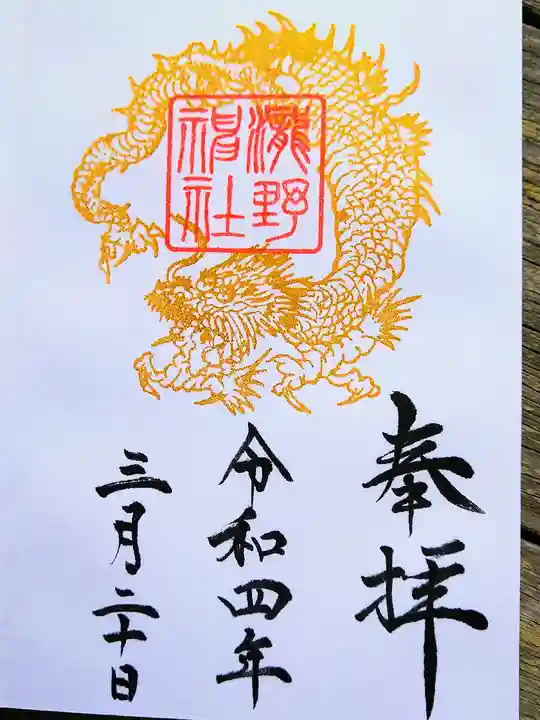 奉拝
瀧野
神社
令和四年
三月二十日